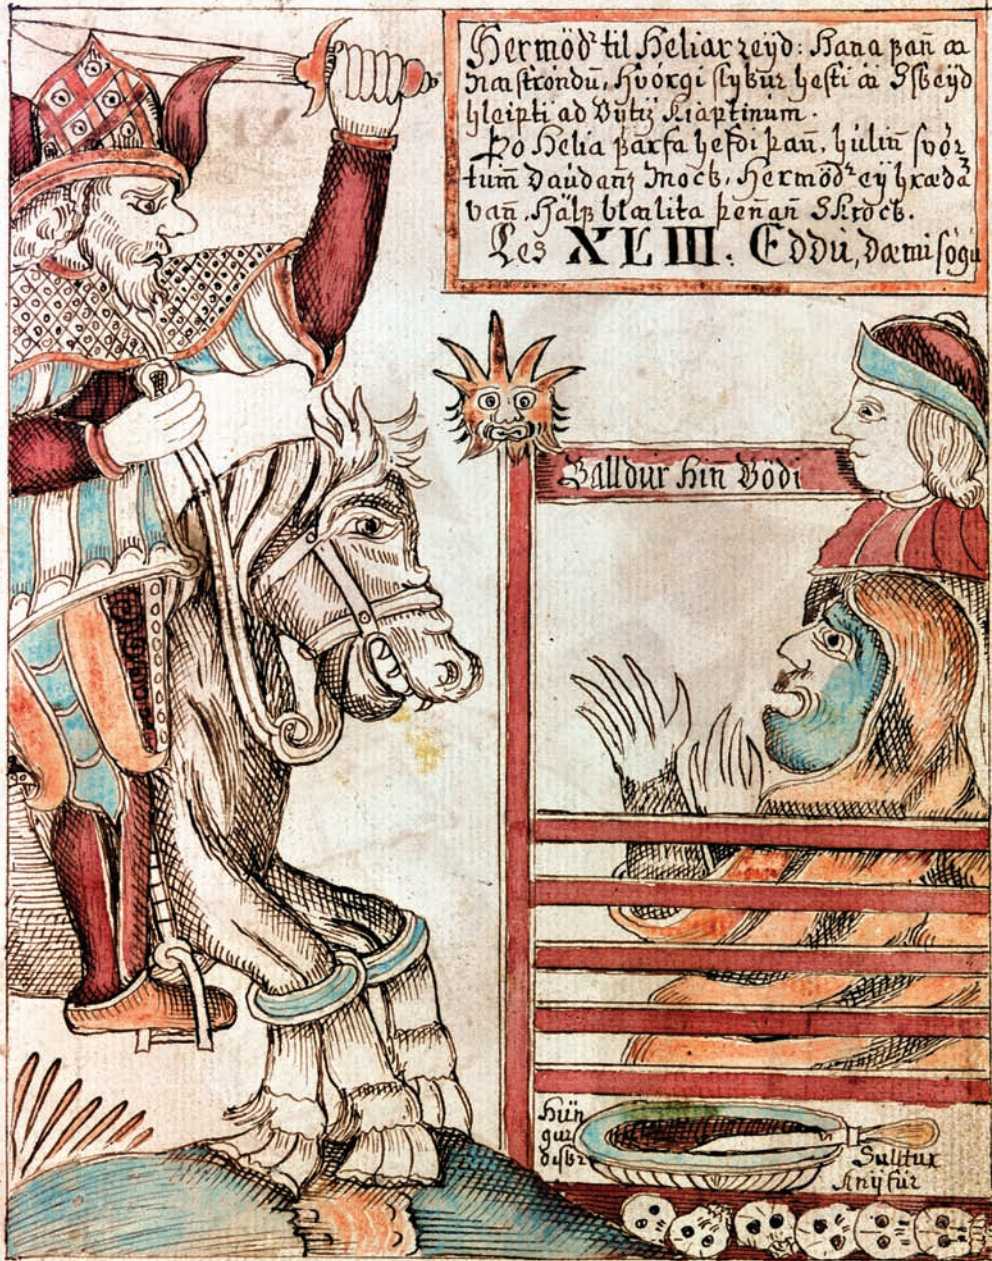 Hermöd͛ til Heliar reÿd: Hana þañ aa
Naaströndu, Hvörgi slÿkur hesti aa Skeÿd
hleipti ad Kiaptinum.
Þo Helia þarfa hefdi þañ, húliñ svör
tum̄ Daudanz Mock, Hermöd͛ eÿ hrædd
vañ, Hälf blaalita þeñañ Skrock.
Les XLIII. Eddu, Dæmisögu
Balldur hin Gödi
Hún
gur
diskr
Sulltur
knÿfur